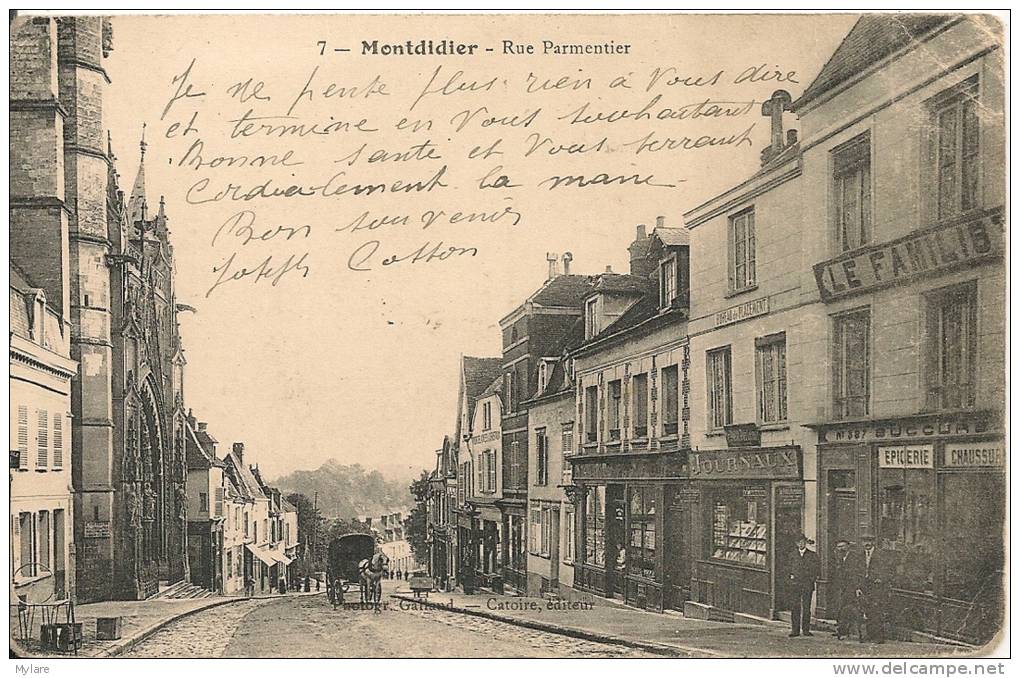 7 — Montdidier - Rue Parmentier
Je ne pense plus rien à vous dire
et termine en vous souhaitant
Bonne Santé et vous serrant
Cordialement la main
Bon souvenir
Joseph Cotton
LE FAMILIS
BUREAU de PLACEMENT
N° 387 SUCCURS
EPICERIE CHAUSSUR
JOURNAUX
Photogr. Galland — Catoire, éditeur
Mylare
http://www.delcampe.net